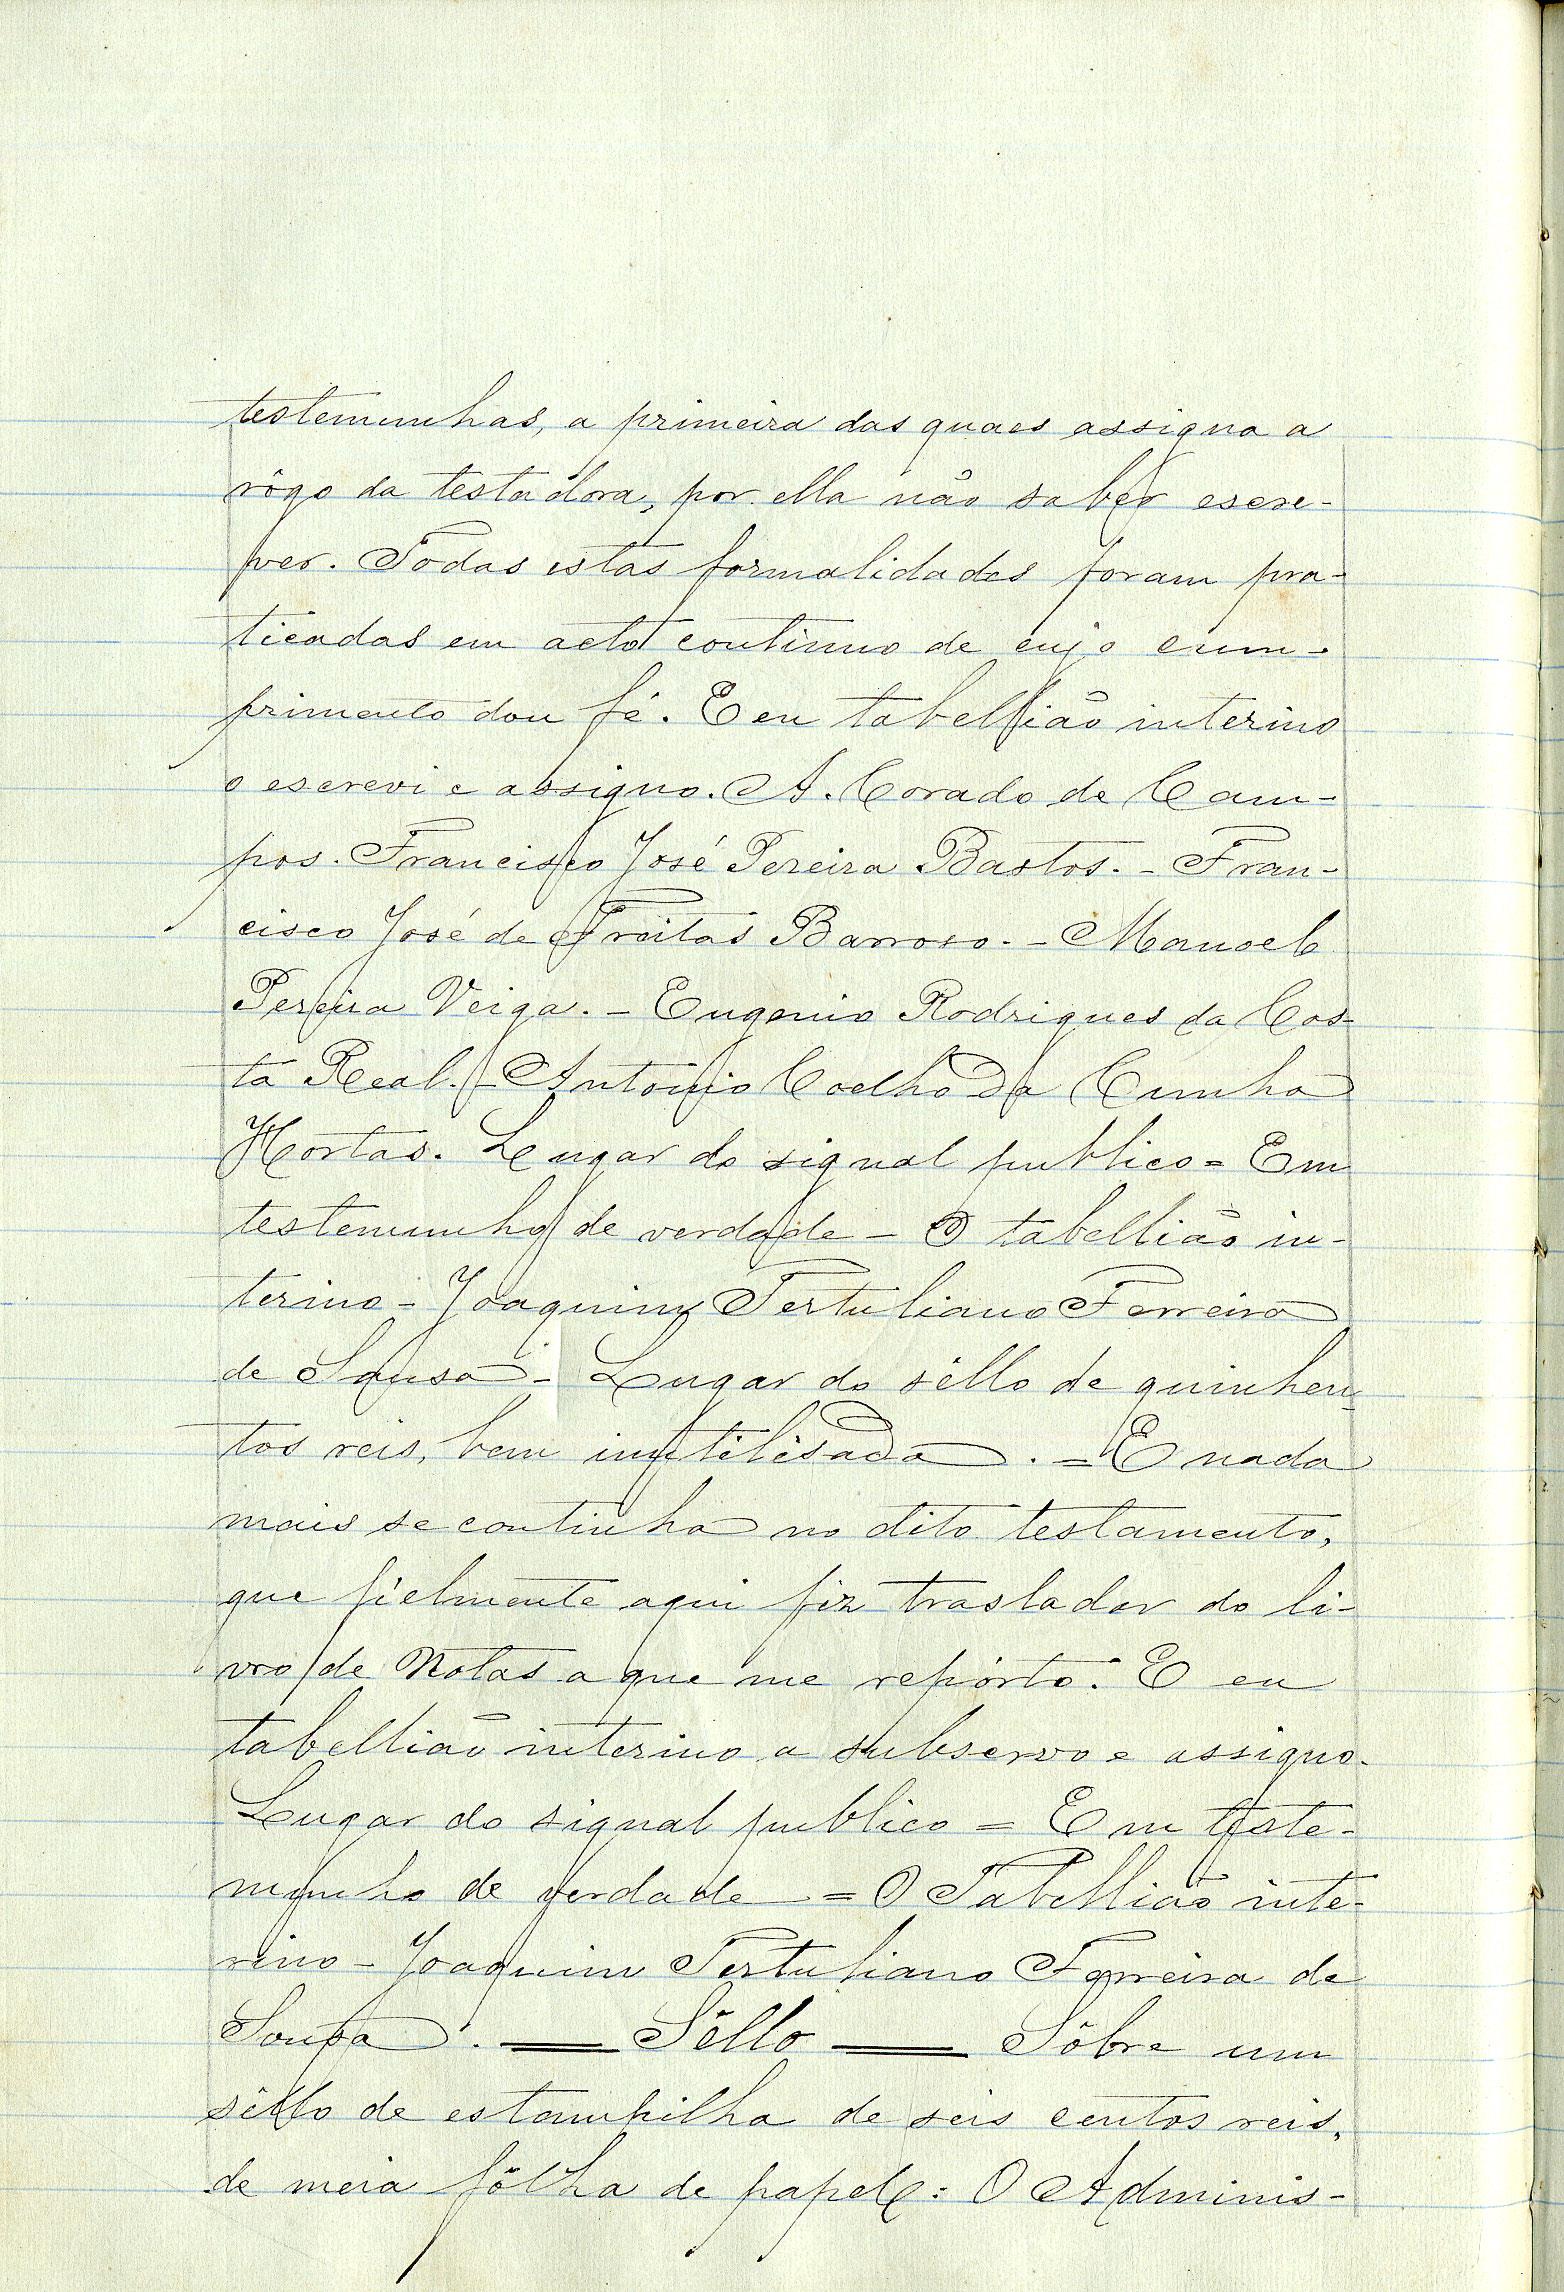 testemunhas, a primeira das quaes assigna a
rôgo da testadora, por ella não saber escre-
ver. Todas estas formalidades foram pra-
ticadas em acto continuo de cujo cum-
primento dou fé. E eu tabellião interino
o escrevi e assigno. A. Corado de Cam-
pos. Francisco José Pereira Bastos. - Fran-
cisco José de Freitas Barroso. - Manoel
Pereira Veiga. - Eugenio Rodrigues da Cos-
ta Real. - Antonio Coelho da Cunha
Hortas. Lugar do signal publico = Em
testemunho de verdade - O tabellião in-
terino - Joaquim Tertuliano Ferreira
de Sousa - Lugar do sêllo de quinhen-
tos reis, bem inutilisada. = E nada
mais se continha no dito testamento,
que fielmente aqui fiz trasladar do li-
vro de Notas a que me repórto. E eu
tabellião interino a subscrevo e assigno.
Lugar do signal publico = Em teste-
munho de verdade = O Tabellião inte-
rino - Joaquim Tertuliano Ferreira de
Sousa. — Sêllo — Sôbre um
sêllo de estampilha de seis centos reis,
de meia fôlha de papel: O Adminis-